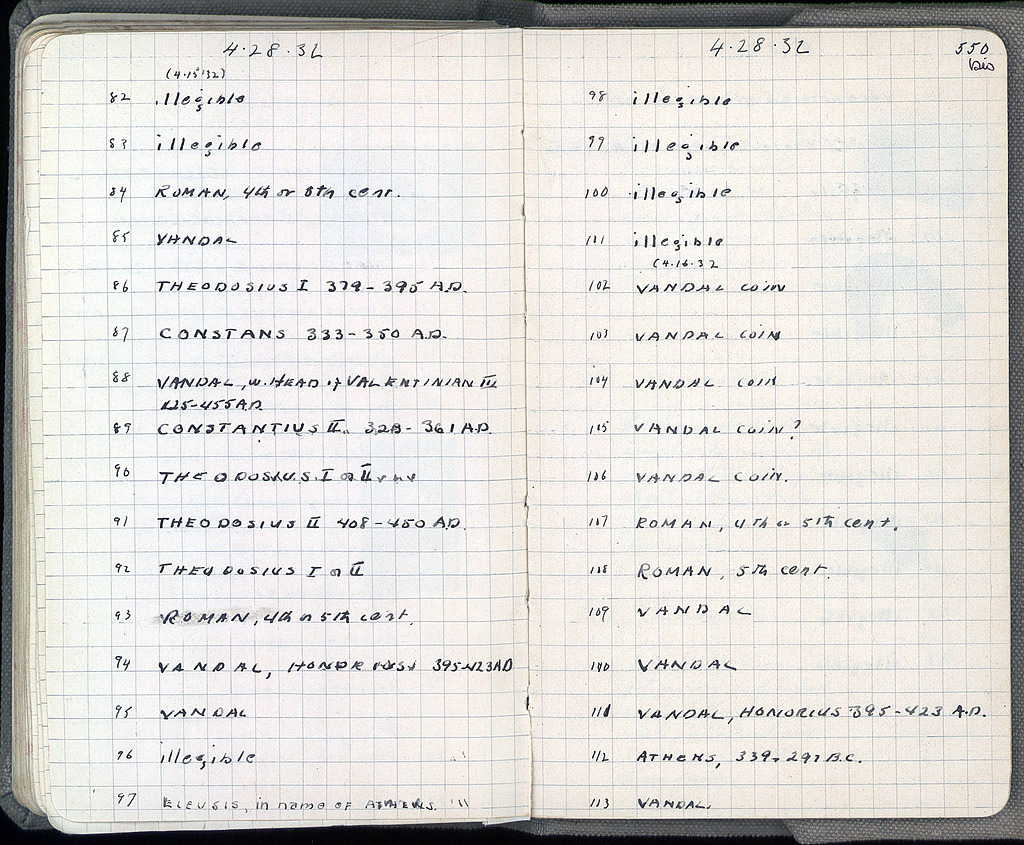 4·28·32
(4·15·32)
82 illegible
83 illegible
84 ROMAN, 4th or 5th cent.
85 VANDAL
86 THEODOSIUS I 379-395 A.D.
87 CONSTANS 333-350 A.D.
88 VANDAL, w. HEAD of VALENTINIAN III
425-455 A.D.
89 CONSTANTIUS II 323-361 A.D.
90 THEODOSIUS I or II
91 THEODOSIUS II 408-450 A.D.
92 THEODOSIUS I or II
93 ROMAN, 4th or 5th cent.
94 VANDAL, HONORIUS 395-423 AD
95 VANDAL
96 illegible
97 ELEUSIS, in name of ATHENS.
4·28·32
550
bis
98 illegible
99 illegible
100 illegible
101 illegible
(4·16·32
102 VANDAL COIN
103 VANDAL COIN
104 VANDAL COIN
105 VANDAL COIN?
106 VANDAL COIN.
107 ROMAN, 4th or 5th cent.
108 ROMAN, 5th cent.
109 VANDAL
110 VANDAL
111 VANDAL, HONORIUS 395-423 A.D.
112 ATHENS, 339-297 B.C.
113 VANDAL.